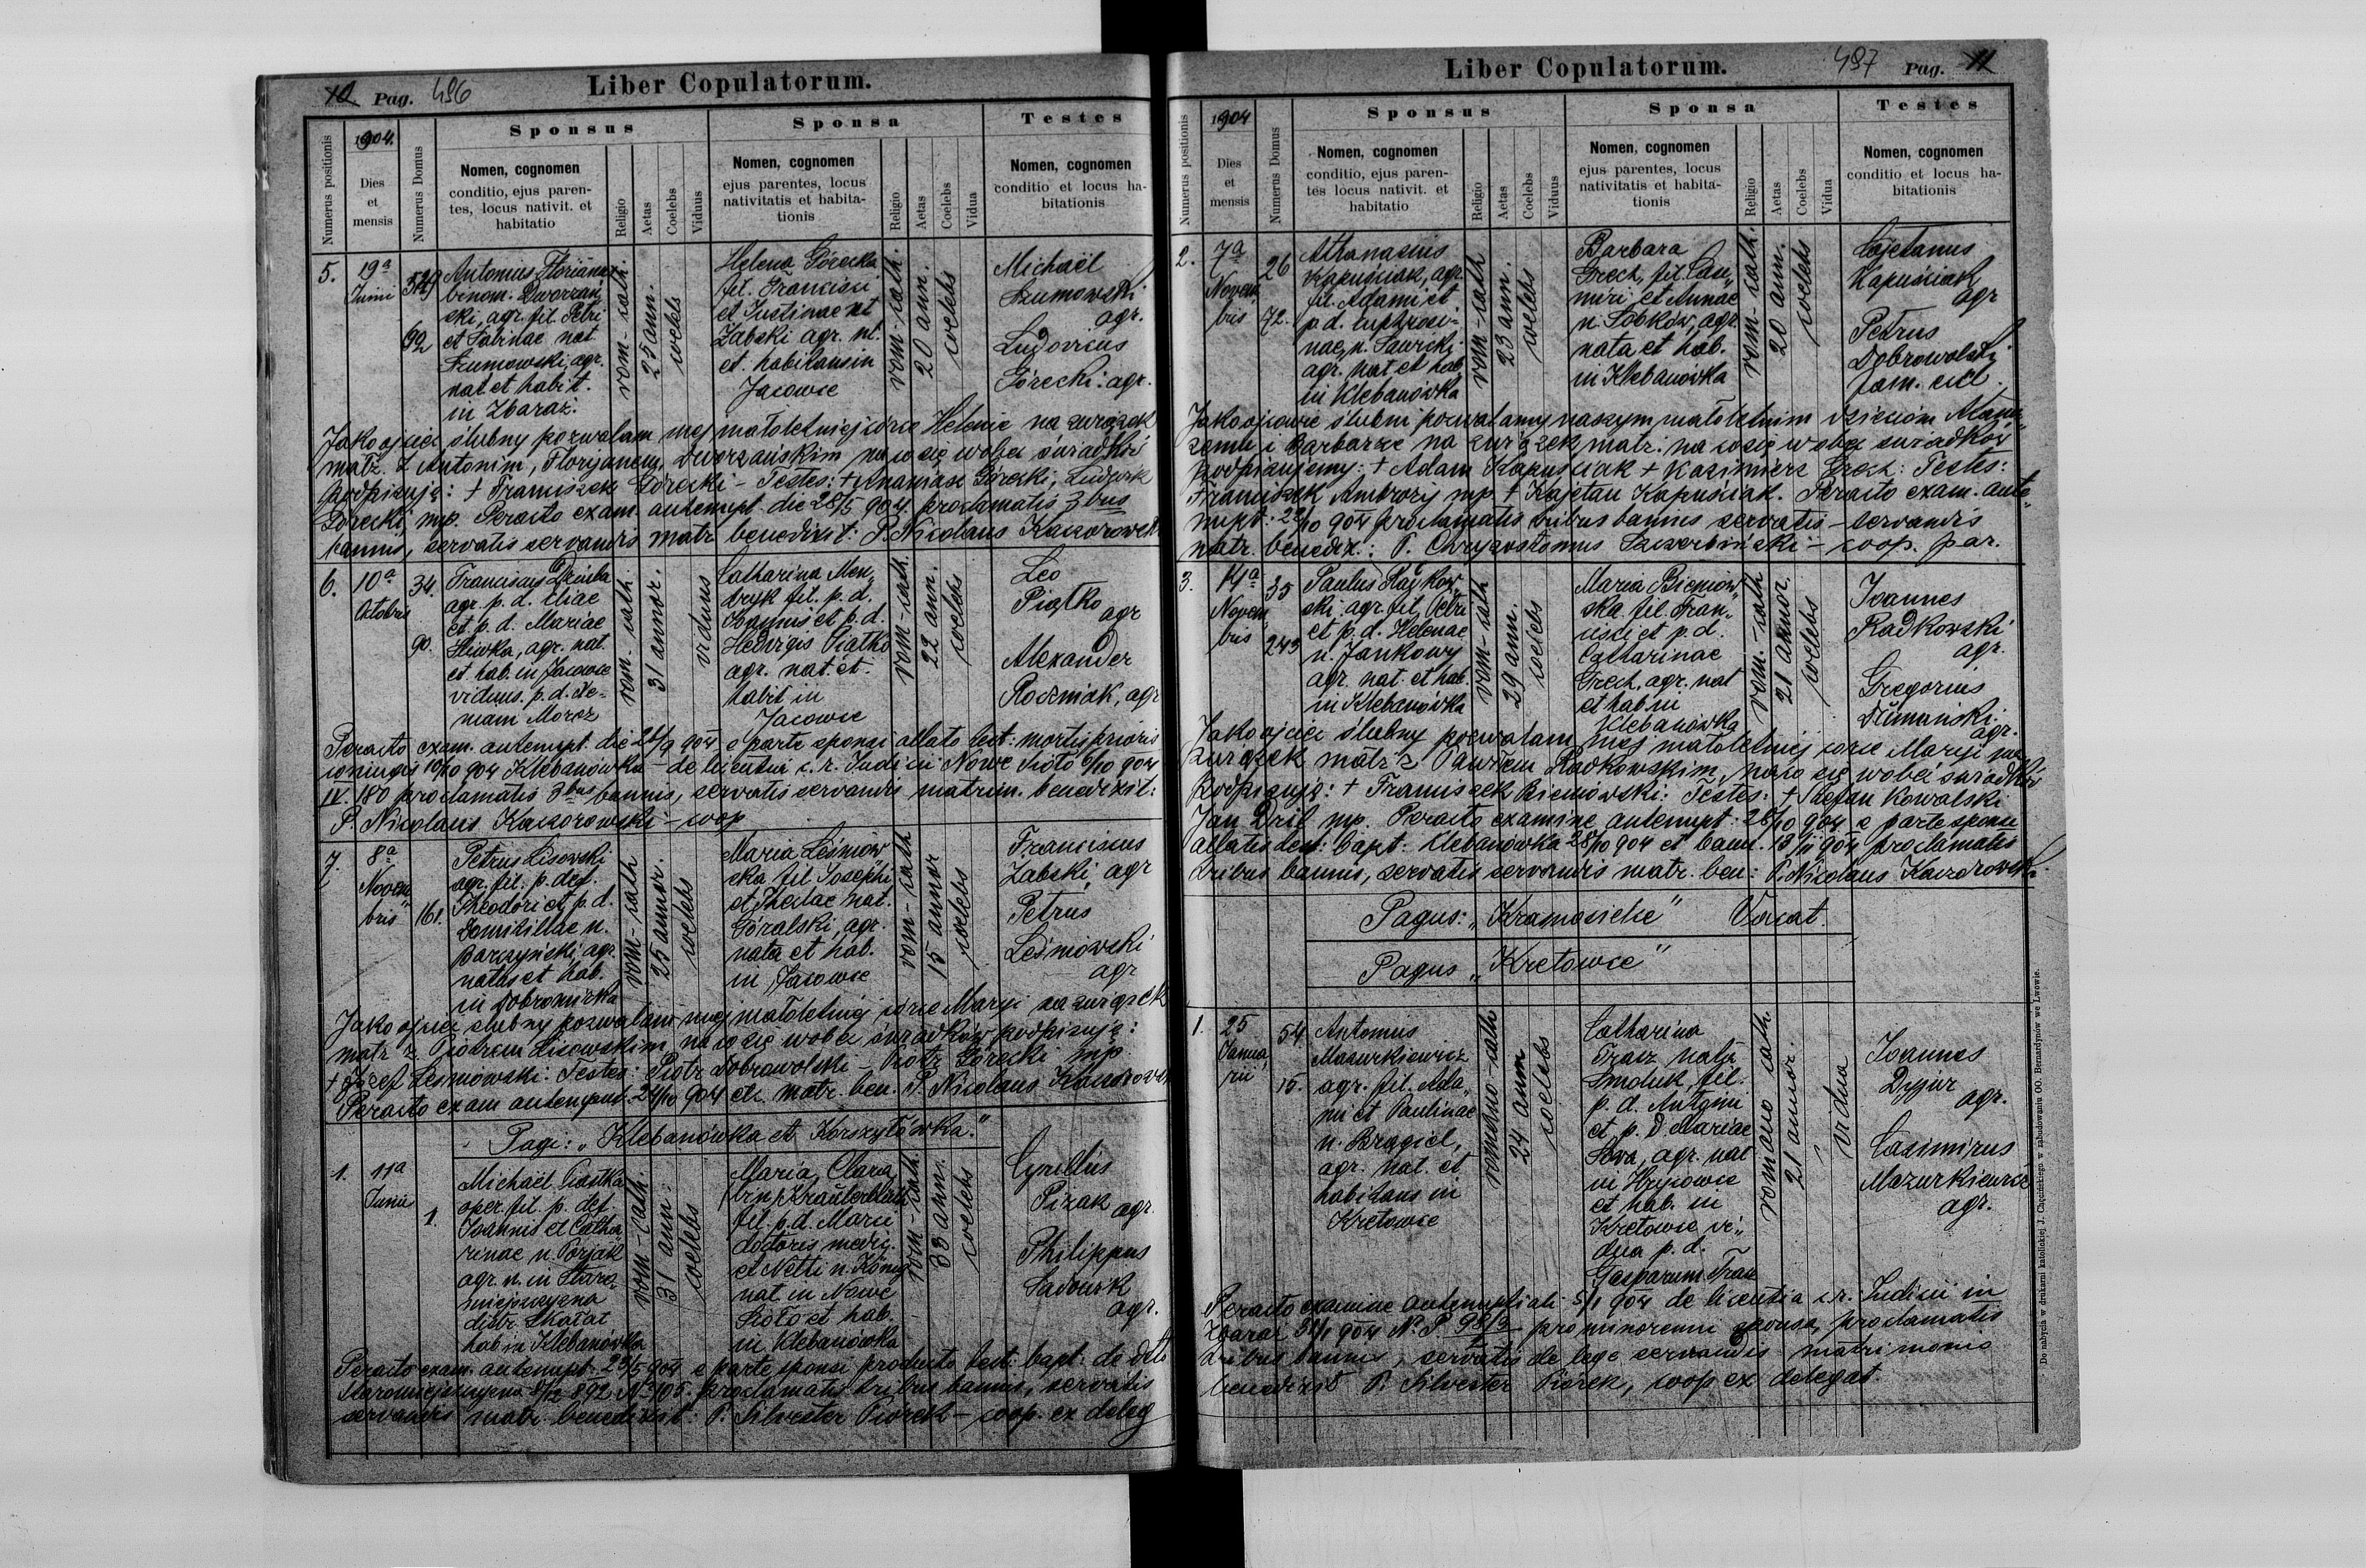 10 Pag. 496
Liber Copulatorum.
Numerus positionis
1904.
Dies
et
mensis
Numerus Domus
Sponsus
Nomen, cognomen
conditio, ejus paren-
tes, locus nativit. et
habitatio
Religio
Aetas
Coelebs
Viduus
Sponsa
Nomen, cognomen
ejus parentes, locus
nativitatis et habita-
tionis
Religio
Aetas
Coelebs
Vidua
Testes
Nomen, cognomen
conditio et locus ha-
bitationis
5.
19a
Junii
92
Antonius Florianus
binom. Dworzań
ski, agr. fil. Petri
et Sabinae nat
Szumowski, agr.
nat et habit.
in Zbaraż.
rom-cath.
25 ann.
coelebs
Helena Górecka
fil. Francisci
et Justinae nt
Żabski agr. nt.
et habitans in
Jacowce
rom-cath.
20 ann.
coelebs
Michaël
Szumowski
agr.
Ludovicus
Górecki: agr.
Jako ojciec ślubny pozwalam mej małoletniej córce Helenie na związek
małż. z Antonim, Floryanem, Dworzańskim na co się wobec świadków
podpisuję: + Franciszek Górecki – Testes: + Ananiasz Górecki, Ludwik
Górecki mp. Peracto exam. antenupt. die 28/5 904. proclamatis 3bus
bannis, servatis servandis matr benedixit: P. Nicolaus Kaczorowski
6.
10a
Octobris
34.
90.
Franciscus Dziuba
agr. p. d. Eliae
et p. d. Mariae
Śliwka, agr. nat.
et hab. in Jacowce
viduus. p. d. Xe-
niam Morcz
rom. cath.
31 annor.
viduus
Catharina Men„
dryk fil. p. d.
Joannis et p. d.
Hedvigis Piątko
agr. nat. et.
habit in
Jacowce
rom-cath.
22 ann.
coelebs
Leo
Piątko
agr
Alexander
Roczniak, agr
Peracto exam. antenupt. die 24/9 904 e parte sponsi allato test: mortis prioris
coniugis 10/10 904 Klebanówka – de licentia c. r. Judicii Nowe Sioło 6/10 904
IV. 180 proclamatis 3bus bannis, servatis servandis matrim. benedixit:
P. Nicolaus Kaczorowski – coop
7.
8a
Novem„
bris
161.
Petrus Lisowski
agr. fil. p. def.
Theodori et p. d.
Domicillae n.
Barczyński, agr.
natus et hab.
in Dobromirka
rom-cath
25 annor.
coelebs
Maria Leśniow„
ska fil Josephi
et Theclae nat.
Góralski, agr.
nata et hab.
in Jacowce
rom-cath
15 annor
coelebs
Franciscus
Żabski, agr
Petrus
Leśniowski
agr
Jako ojciec ślubny pozwalam mej małoletniej córce Maryi na związek
matr. z Piotrem Lisowskim, na co się wobec świadków podpisuję:
+ Józef Leśniowski: Testes: Piotr Dobrowolski – Piotr Górecki mp.
Peracto exam antenupt. 24/10 904 etc. matr. ben. P. Nicolaus Kaczorowski
Pagi: „Klebanówka et Korszyłówka.”
1.
11a
Junii
1.
Michaël Piątka
oper. fil. p. def.
Joannis et Catha„
rinae n. Porjak
agr. n. in Staro„
miejszczyzna
distr. Skałat
hab in Klebanówka
rom-cath.
31 ann.
coelebs
Maria, Clara,
fil. p. d. Marci
doctoris medic.
et Netti n. König
nat. in Nowe
Sioło et hab.
in Klebanówka
rom-cath.
33 ann.
coelebs
Cyrillus
Pizak
agr.
Philippus
Sadowik
agr.
Peracto exam. antenupt. 23/5 904 e parte sponsi producto test: bapt: de dtto
Staromiejszczyzna 8/12 892 No 105. proclamatis tribus bannis, servatis
servandis matr. benedixit: P. Silvester Piórek – coop. ex deleg
Liber Copulatorum.
497 Pag. 11
Numerus positionis
1904
Dies
et
mensis
Numerus Domus
Sponsus
Nomen, cognomen
conditio, ejus paren-
tes locus nativit. et
habitatio
Religio
Aetas
Coelebs
Viduus
Sponsa
Nomen, cognomen
ejus parentes, locus
nativitatis et habita-
tionis
Religio
Aetas
Coelebs
Vidua
Testes
Nomen, cognomen
conditio et locus ha-
bitationis
2.
7a
Novem
bris
26
72.
Athanasius
Kapuściak, agr.
fil. Adami et
p d. Euphrosi-
nae, n. Sawicki
agr. nat et hab
in Klebanówka
rom-cath
23 ann.
coelebs
Barbara
Grech, fil. Casi„
miri et Annae
n. Sobków, agr.
nata et hab.
in Klebanówka
rom-cath.
20 ann.
coelebs
Cajetanus
Kapuściak
agr
Petrus
Dobrowolski
fam. eccl.
Jako ojcowie ślubni pozwalamy naszym małoletnim dzieciom Atana„
zemu i Barbarze na związek matr. na co się wobec świadków
podpisujemy: + Adam Kapuściak + Kazimierz Grech: Testes:
Franciszek Ambroży mp. + Kajetan Kapuściak. Peracto exam. ante„
nupt: 22/10 904 proclamatis tribus bannis servatis – servandis
matr. benedix.: P. Chrysostomus Szczerbiński – coop. par.
3.
14a
Novem„
bris
35
243
Paulus Radkow„
ski agr. fil. Petri
et p. d. Helenae
n. Jankowy
agr. nat. et hab.
in Klebanówka
rom-cath
29 ann.
coelebs
Maria Bieniow„
ska fil. Fran„
cisci et p. d.
Catharinae
Grech, agr. nat
et hab. in
Klebanówka
rom.-cath
21 annor.
coelebs
Joannes
Radkowski
agr.
Gregorius
agr.
Jako ojciec ślubny pozwalam mej małoletniej córce Maryi na
związek matr z Pawłem Radkowskim, na co się wobec świadków
podpisuję: + Franciszek Bieniowski: Testes: + Stefan Kowalski
Jan Dril mp. Peracto examine antenupt: 26/10 904 e parte sponsi
allatis test: bapt: Klebanówka 28/10 904 et bann. 13/11 904 proclamatis
tribus bannis, servatis servandis matr. ben: P. Nicolaus Kaczorowski
Pagus: „Kramosielce” Vacat.
Pagus „Kretowce”
1.
25
Janua„
rii
54
15.
Antonius
Mazurkiewicz
agr. fil. Ada„
mi et Paulinae
n. Bragiel,
agr. nat. et
habitans in
Kretowce
romano-cath
24 ann
coelebs
Catharina
Tracz nata
Smoluk, fil.
p. d. Antoni
et p. d Mariae
Sowa, agr. nat
in Hrycowce
et hab. in
Kretowce vi„
dua p. d.
Gasparum Tracz
romano cath.
21 annor.
vidua
Joannes
agr.
Casimirus
Mazurkiewicz
agr.
Peracto examine antenuptiali 5/1 904 de licentia c. r. Judicii in
Zbaraż 31/1 904 No P 98/3 pro minorenni sponsa, proclamatis
tribus bannis, servatis de lege servandis matrimonio
benedixit P. Silvester Piórek, coop ex delegat.
Do nabycia w drukarni katolickiej J. Chęcińskiego w zabudowaniu OO. Bernardynów we Lwowie.